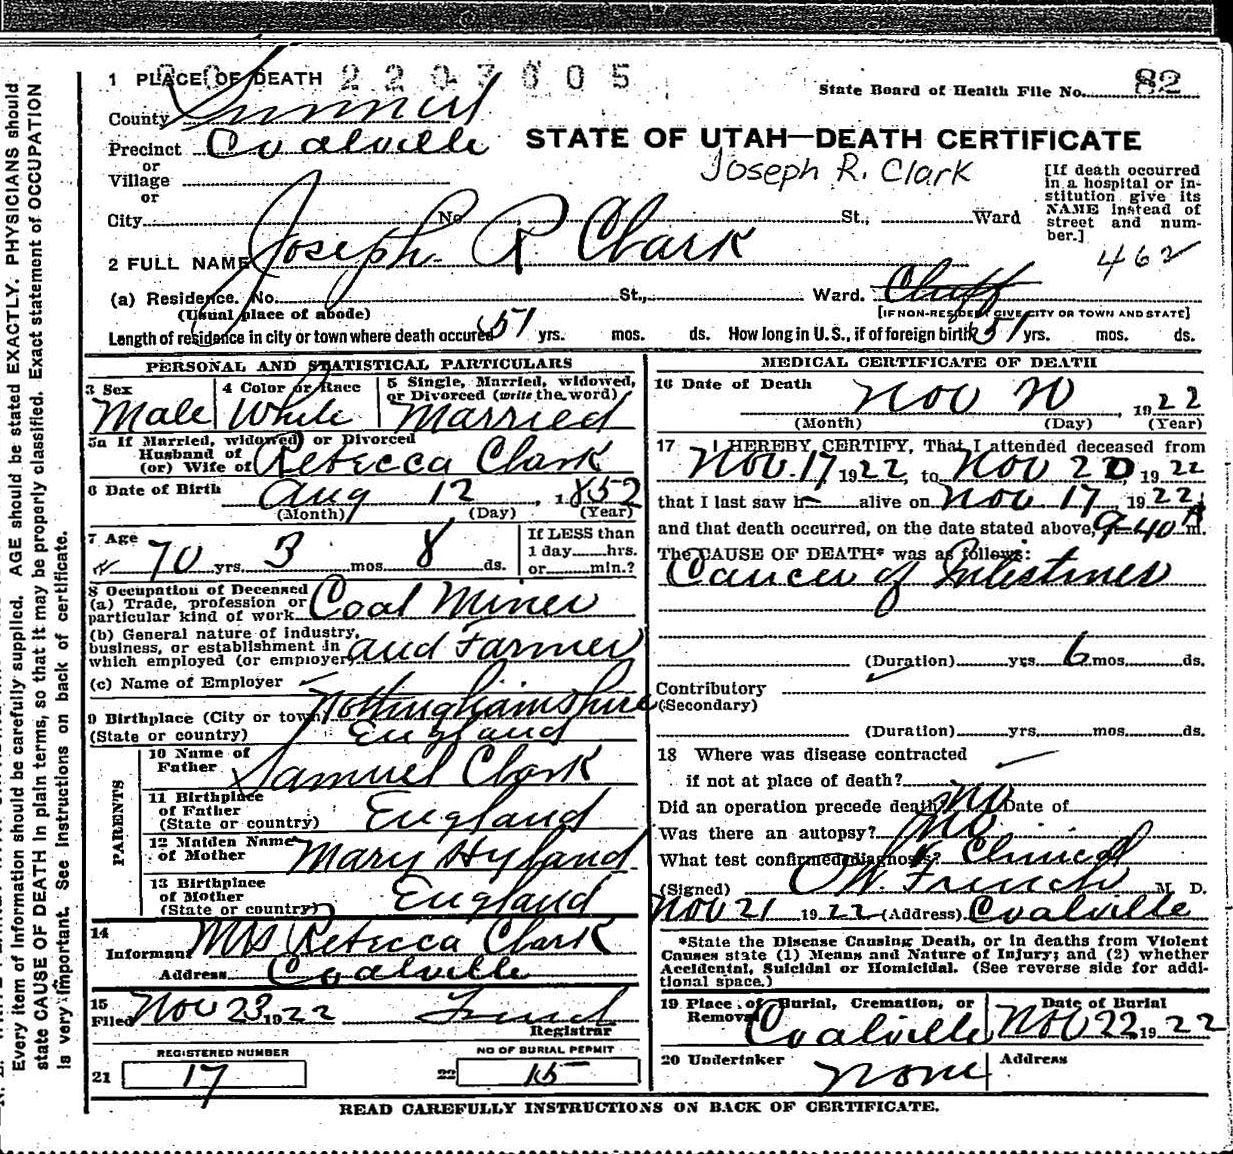 1 PLACE OF DEATH 2207605
State Board of Health File No. 82
County Summit
Precinct Coalville
STATE OF UTAH—DEATH CERTIFICATE
or
Village
Joseph R. Clark
or
City No. St., Ward
[If death occurred in a hospital or in-
stitution give its
NAME instead of
street and num-
ber.]
462
2 FULL NAME Joseph R Clark
(a) Residence. No. St., Ward. Cluff
(Usual place of abode) [IF NON-RESIDENT GIVE CITY OR TOWN AND STATE]
Length of residence in city or town where death occured 51 yrs. mos. ds. How long in U.S., if of foreign birth 51 yrs. mos. ds.
PERSONAL AND STATISTICAL PARTICULARS
3 Sex Male
4 Color or Race White
5 Single, Married, widowed,
or Divorced (write the word)
Married
5a If Married, widowed or Divorced
Husband of
(or) Wife of Rebecca Clark
6 Date of Birth Aug 12, 1852
(Month) (Day) (Year)
7 Age
70 yrs. 3 mos 8 ds.
If LESS than
1 day hrs.
or min.?
8 Occupation of Deceased
(a) Trade, profession or
particular kind of work Coal Miner
(b) General nature of industry,
business, or establishment in
which employed (or employer) and Farmer
(c) Name of Employer
9 Birthplace (City or town) Nottinghamshire
(State or country) England
PARENTS
10 Name of
Father Samuel Clark
11 Birthplace
of Father
(State or country) England
12 Maiden Name
of Mother Mary Hyland
13 Birthplace
of Mother
(State or country) England
14
Informant Mrs Rebecca Clark
Address Coalville
15
Filed Nov 23 1922 French
Registrar
REGISTERED NUMBER
21 17
NO OF BURIAL PERMIT
22 15
MEDICAL CERTIFICATE OF DEATH
16 Date of Death Nov 20, 1922
(Month) (Day) (Year)
17 I HEREBY CERTIFY, That I attended deceased from
Nov. 17 1922, to Nov 20, 1922
that I last saw h alive on Nov 17 1922;
and that death occurred, on the date stated above, 9-40 A m.
The CAUSE OF DEATH* was as follows:
Cancer of Intestines
(Duration) yrs 6 mos. ds.
Contributory
(Secondary)
(Duration) yrs. mos. ds.
18 Where was disease contracted
if not at place of death?
Did an operation precede death? No Date of
Was there an autopsy? No
What test confirmed diagnosis? Clinical
(Signed) O W French M. D.
Nov 21 1922 (Address) Coalville
*State the Disease Causing Death, or in deaths from Violent
Causes state (1) Means and Nature of Injury; and (2) whether
Accidental, Suicidal or Homicidal. (See reverse side for addi-
tional space.)
19 Place of Burial, Cremation, or
Removal Coalville
Date of Burial
Nov 22 1922
20 Undertaker none
Address
READ CAREFULLY INSTRUCTIONS ON BACK OF CERTIFICATE.
Every item of information should be carefully supplied. AGE should be stated EXACTLY. PHYSICIANS should
state CAUSE OF DEATH in plain terms, so that it may be properly classified. Exact statement of OCCUPATION
is very important. See instructions on back of certificate.